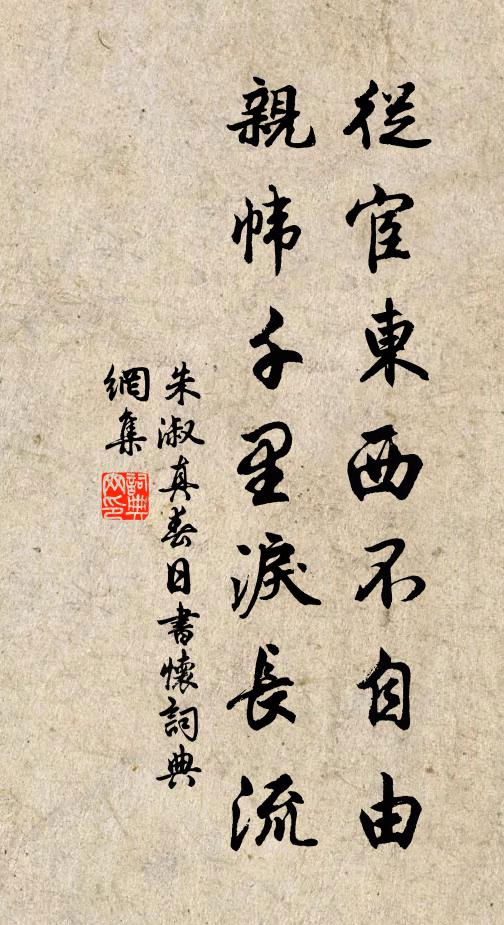 從宦東西不自由
親幃千里淚長流
朱淑真春日書懷詞典
網集
詞典
網印